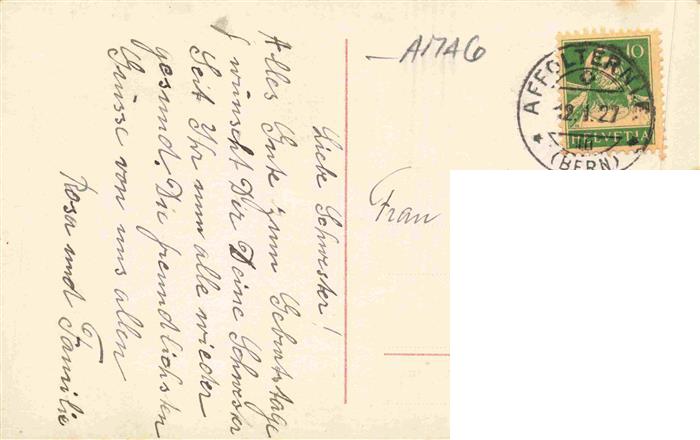 Liebe Schwester!
Alles Gute zum Geburtstage
wünscht Dir Deine Schwester
Seit Ihr nun alle wieder
gesund. Die freundlichsten
Grüsse von uns allen
Rosa und Familie
AMAG
Frau
10
HELVETIA
AFFOLTERN i/E
12.1.27
(BERN)